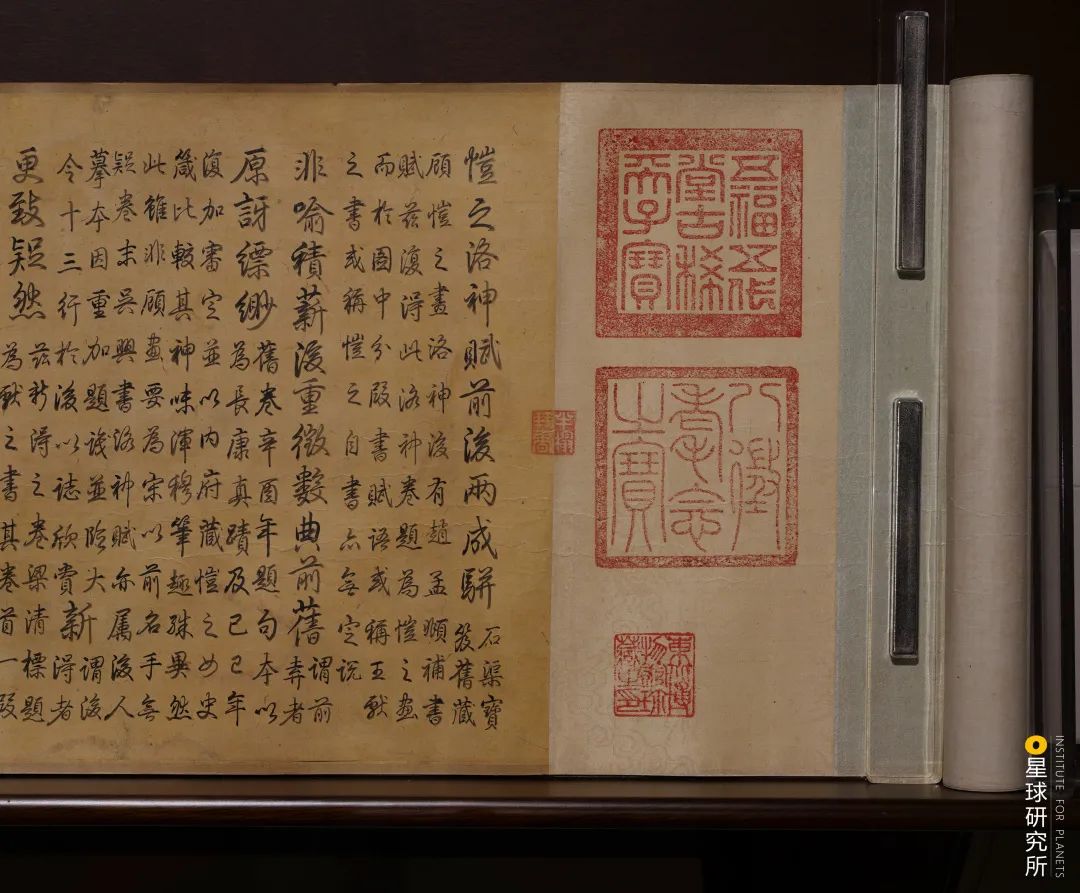 五福五代
堂古稀
天子寶
八徵
耄念
之寶
東北博
物館珍
藏之印
愷之洛神賦前後兩成駢
石渠寶
笈舊藏
顧愷之畫洛神後有趙孟頫補書
賦茲復得此洛神卷題為愷之畫
而於圖中分段書賦語或稱王獻
之書或稱愷之自書亦無定説
非喻積薪後重徵數典前舊
謂前
弆者
原訝縹緲
舊卷辛酉年題句本以
為長康真蹟及己巳年
復加審定並以內府藏愷之女史
箴比較其神味渾穆筆趣殊異然
此雖非顧畫要為宋以前名手無
疑卷末吳興書洛神賦亦屬後人
摹本因重加題識並臨大
令十三行於後以誌欣賞
新
謂後
得者
更致疑然
茲新得之卷梁清標題
為獻之書其卷首一段
星球研究所
INSTITUTE FOR PLANETS